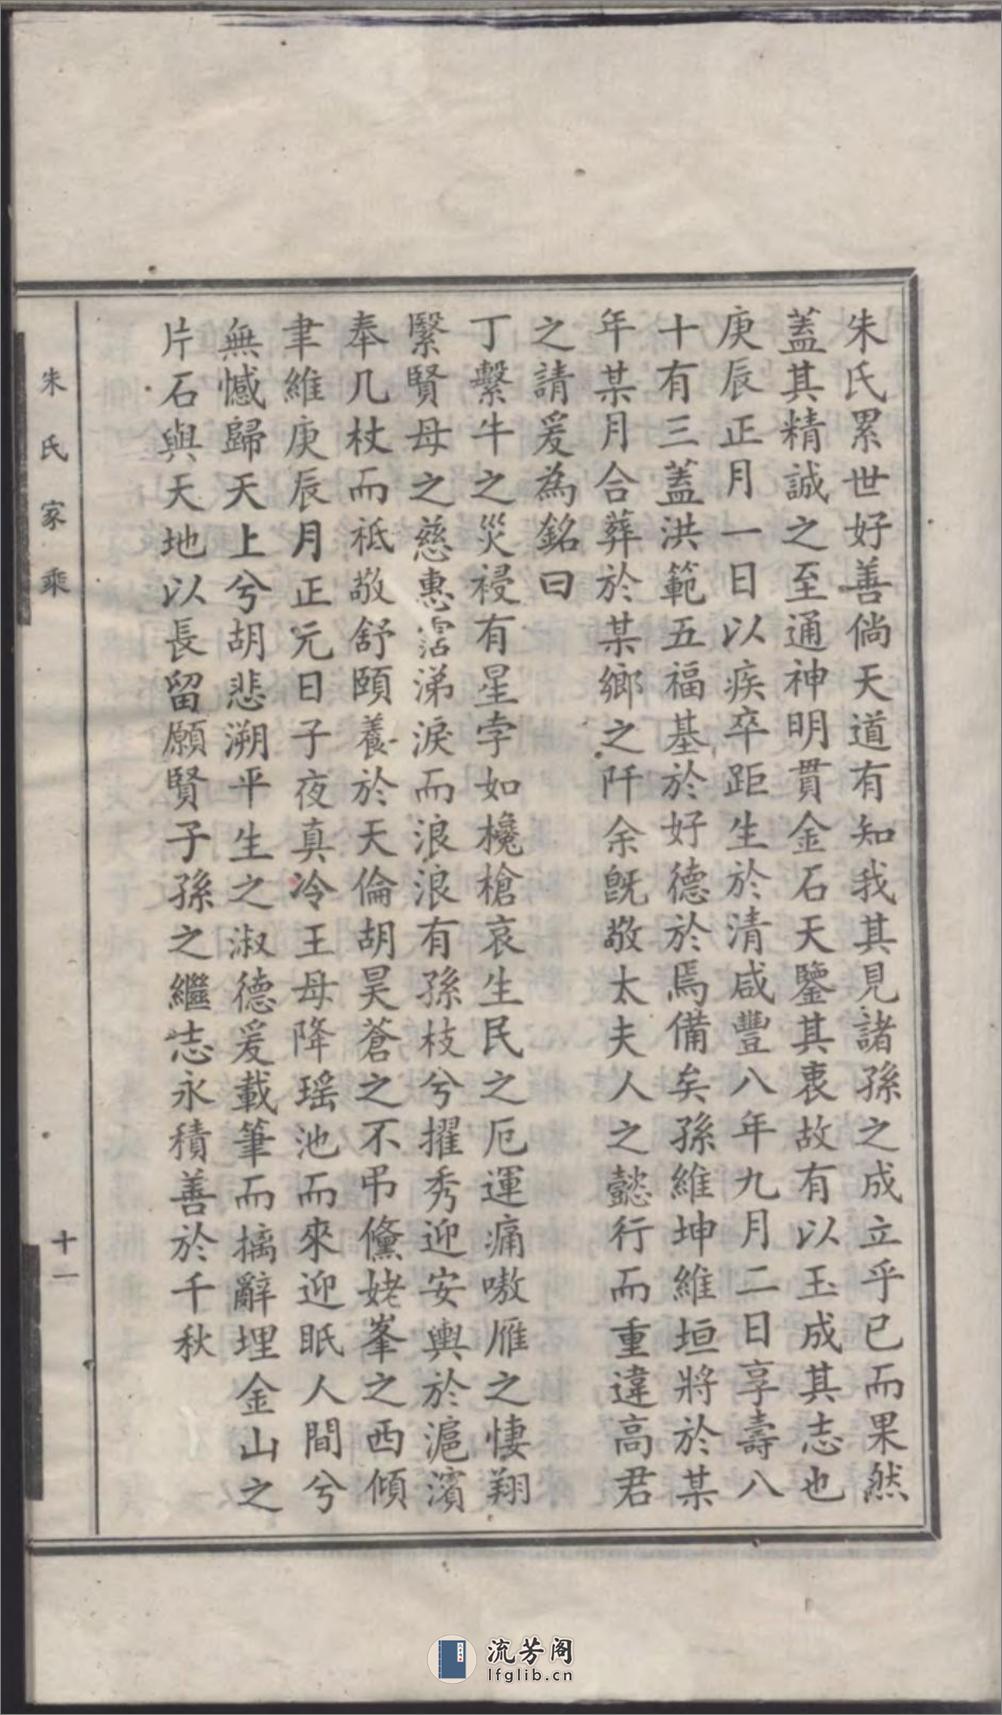 朱氏累世好善倘天道有知我其見諸孫之成立乎已而果然
蓋其精誠之至通神明貫金石天鑒其衷故有以玉成其志也
庚辰正月一日以疾卒距生於清咸豐八年九月二日享壽八
十有三蓋洪範五福基於好德於焉備矣孫維坤維垣將於某
年某月合葬於某鄉之阡余既敬太夫人之懿行而重違高君
之請爰為銘曰
丁繫牛之災祲有星孛如欃槍哀生民之厄運痛嗷雁之悽翔
繄賢母之慈惠霑涕淚而浪浪有孫枝兮擢秀迎安輿於滬濱
奉几杖而祗敬舒頤養於天倫胡昊蒼之不弔儻姥峯之西傾
聿維庚辰月正元日子夜真冷王母降瑤池而來迎眂人間兮
無憾歸天上兮胡悲溯平生之淑德爰載筆而摛辭埋金山之
片石與天地以長留願賢子孫之繼志永積善於千秋
朱氏家乘
十一
流芳阁
lfglib.cn